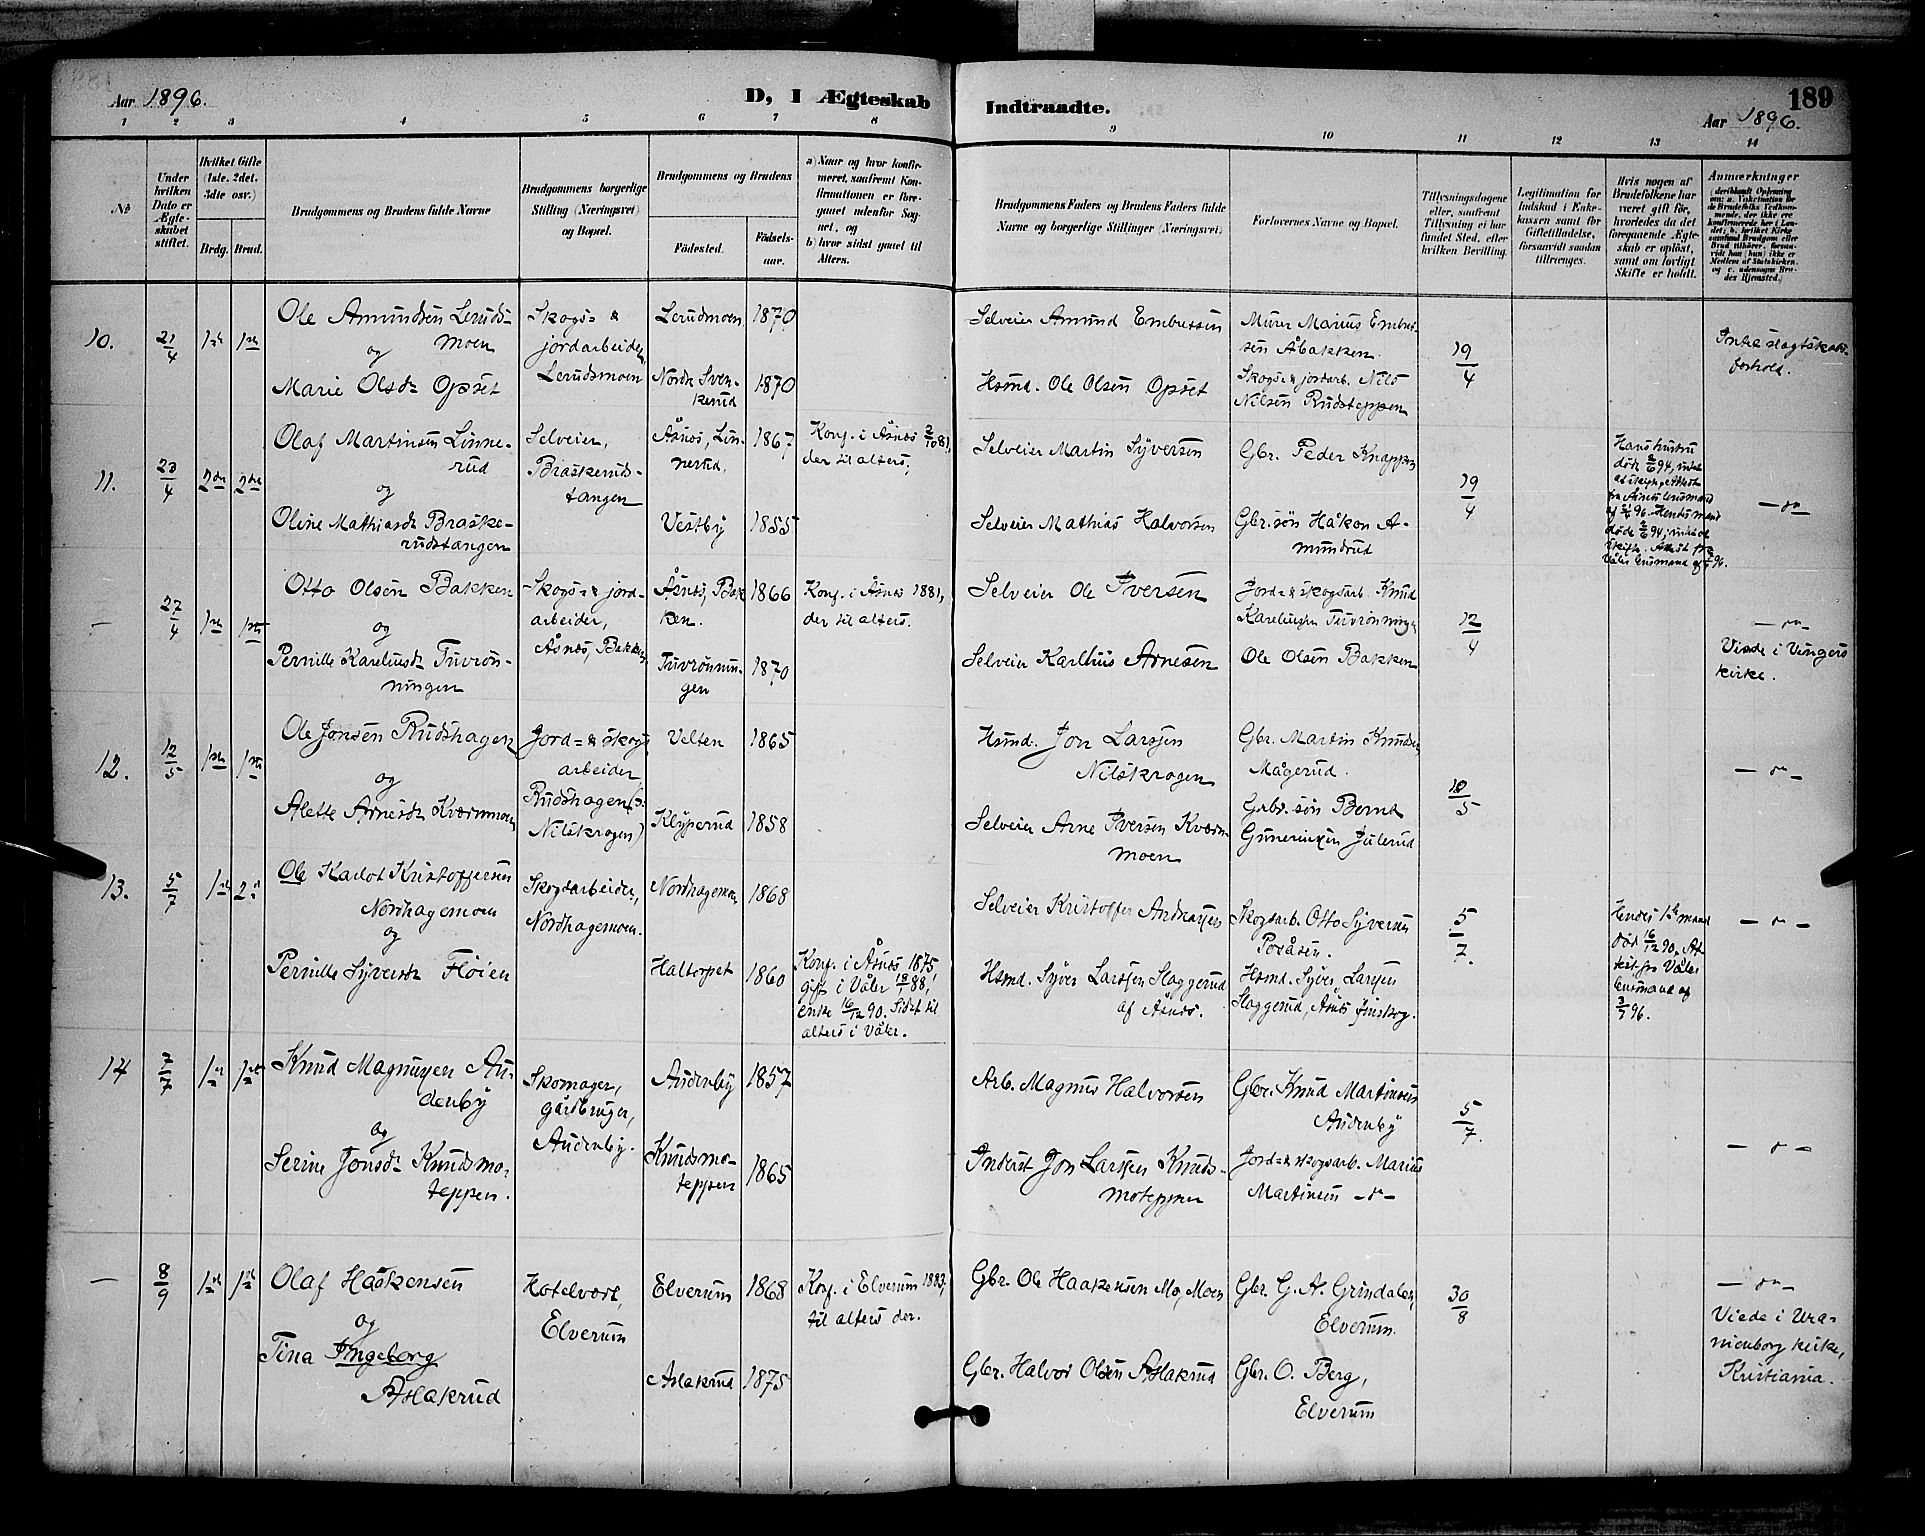 Aar 1896.
D, I Ægteskab
Indtraadte.
189
Aar 1896.
1 2 3 4 5 6 7 8
9 10 11 12 13 14
№
Under hvilken Dato er Ægteskabet stiftet.
Hvilket Gifte (1ste, 2det, 3dte osv.)
Brdg. Brud.
Brudgommens og Brudens fulde Navne
Brudgommens borgerlige Stilling (Næringsvei) og Bopæl.
Brudgommens og Brudens
Födested.
Födselsaar.
a) Naar og hvor konfirmeret, saafremt Konfirmationen er foregaaet udenfor Sognet, og
b) hvor sidst gaaet til Alters.
Brudgommens Faders og Brudens Faders fulde Navne og borgerlige Stillinger (Næringsvei).
Forlovernes Navne og Bopæl.
Tillysningsdagene eller, saafremt Tillysning ei har fundet Sted, efter hvilken Bevilling.
Legitimation for Indskud i Enkekassen samt for Giftetilladelse, forsaavidt saadan tiltrænges.
Hvis nogen af Brudefolkene har været gift för, hvorledes da det foregaaende Ægteskab er oplöst, samt om lovligt Skifte er holdt.
Anmærkninger
10.
21/4
1ste 1ste
Ole Amundsen Lerudsmoen
og
Marie Olsdr Opset
Skogs- & jordarbeider, Lerudsmoen
Lerudmoen 1870
Nordr Svenkerud 1870
Selveier Amund Embretsen
Hsmd. Ole Olsen Opset
Murer Marius Embretsen Åbakken.
Skogs- & jordarb. Nils Nilsen Rudsteppen
19/4
Intet slegtskabsforhold.
11.
23/4
2den 2den
Olaf Martinsen Linnerud
og
Oline Mathiasdr Braskerudstangen
Selveier, Braskerudstangen
Åsnes, Linnerud. 1867
Vestby 1855
Konf. i Åsnes 2/10 81, der til alters.
Selveier Martin Syversen
Selveier Mathias Halvorsen
Gbr. Peder Knappen
Gbr.søn Håkon Amundrud
19/4
Hans hustru døde
94,
Åsnes lensmand
96.
døde
94,
skifte. Attest fra Våler lensmand af
96.
– „ –
–
27/4
1ste 1ste
Otto Olsen Bakken
og
Pernille Kareliusdr Tuvrønningen
Skogs- & jordarbeider, Åsnes, Bakken
Åsnes, Bakken. 1866
Tuvrønningen 1870
Konf. i Åsnes 1881, der til alters.
Selveier Ole Iversen
Selveier Karelius Arnesen
Jord- & skogsarb. Knud Kareliusen Tuvrønningen
Ole Olsen Bakken
12/4
– „ –
Viede i Vingers kirke.
12.
12/5
1ste 1ste
Ole Jonsen Rudshagen
og
Alette Arnesdr Kvernmoen
Jord- & skogsarbeider Rudshagen (ɔ: Nilskrogen)
Velten 1865
Klyperud 1858
Hsmd. Jon Larssen Nilskrogen
Selveier Arne Iversen Kvernmoen
Gbr. Martin Knudsen Mågerud.
Gbr.søn Bernt Gunerius[s]en Julerud
10/5
– „ –
13.
5/7
1ste 2det
Ole Karlot Kristoffersen Nordhagemoen
og
Pernille Syversdr Fløien
Skogsarbeider, Nordhagemoen.
Nordhagemoen 1868
Haltorpet 1860
Konf. i Åsnes 1875, gift i Våler 88, enke 16/12 90. Sidst til alters i Våler.
Selveier Kristoffer Andreassen
Hsmd. Syver Larssen Slaggerud af Åsnes.
Skogsarb. Otto Syversen Posåsen.
Hsmd. Syver Larssen Slaggerud, Åsnes Finskog.
5/7.
Hendes 1ste mand død 16/12 90. Attest fra Våler lensmand af 3/7 96.
– „ –
14
7/7
1ste 1ste
Knud Magnussen Audenby
og
Serine Jonsdr Knudsmoteppen.
Skomager, gårdbruger, Audenby.
Audenby 1857
Knudsmoteppen 1865
Arb. Magnus Halvorsen
Inderst Jon Larssen Knudsmoteppen
Gbr. Knud Martinsen Audenby
Jord- & skogsarb. Marius Martinsen – „ –
5/7.
– „ –
–
8/9
1ste 1ste
Olaf Haakensen
og
Tina Ingeborg Aslakrud
Hotelvært, Elverum
Elverum 1868
Aslakrud 1875
Konf. i Elverum 1883, til alters der.
Gbr. Ole Haakensen Mo, Moen
Gbr. Halvor Olsen Aslakrud
Gbr. G. A. Grindalen, Elverum.
Gbr. O. Berg, Elverum
30/8
– „ –
Viede i Uranienborg kirke, Kristiania.